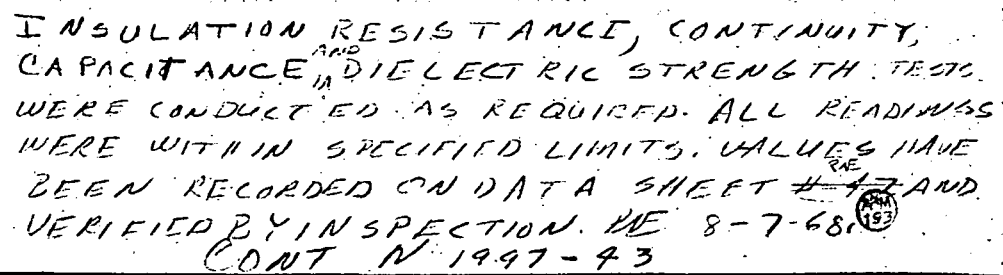 INSULATION RESISTANCE, CONTINUITY,
CAPACITANCE, AND DIELECTRIC STRENGTH TESTS
WERE CONDUCTED AS REQUIRED. ALL READINGS
WERE WITHIN SPECIFIED LIMITS. VALUES HAVE
BEEN RECORDED ON DATA SHEET #47 AND
VERIFIED BY INSPECTION. 8-7-68.
CONT N 1997-43